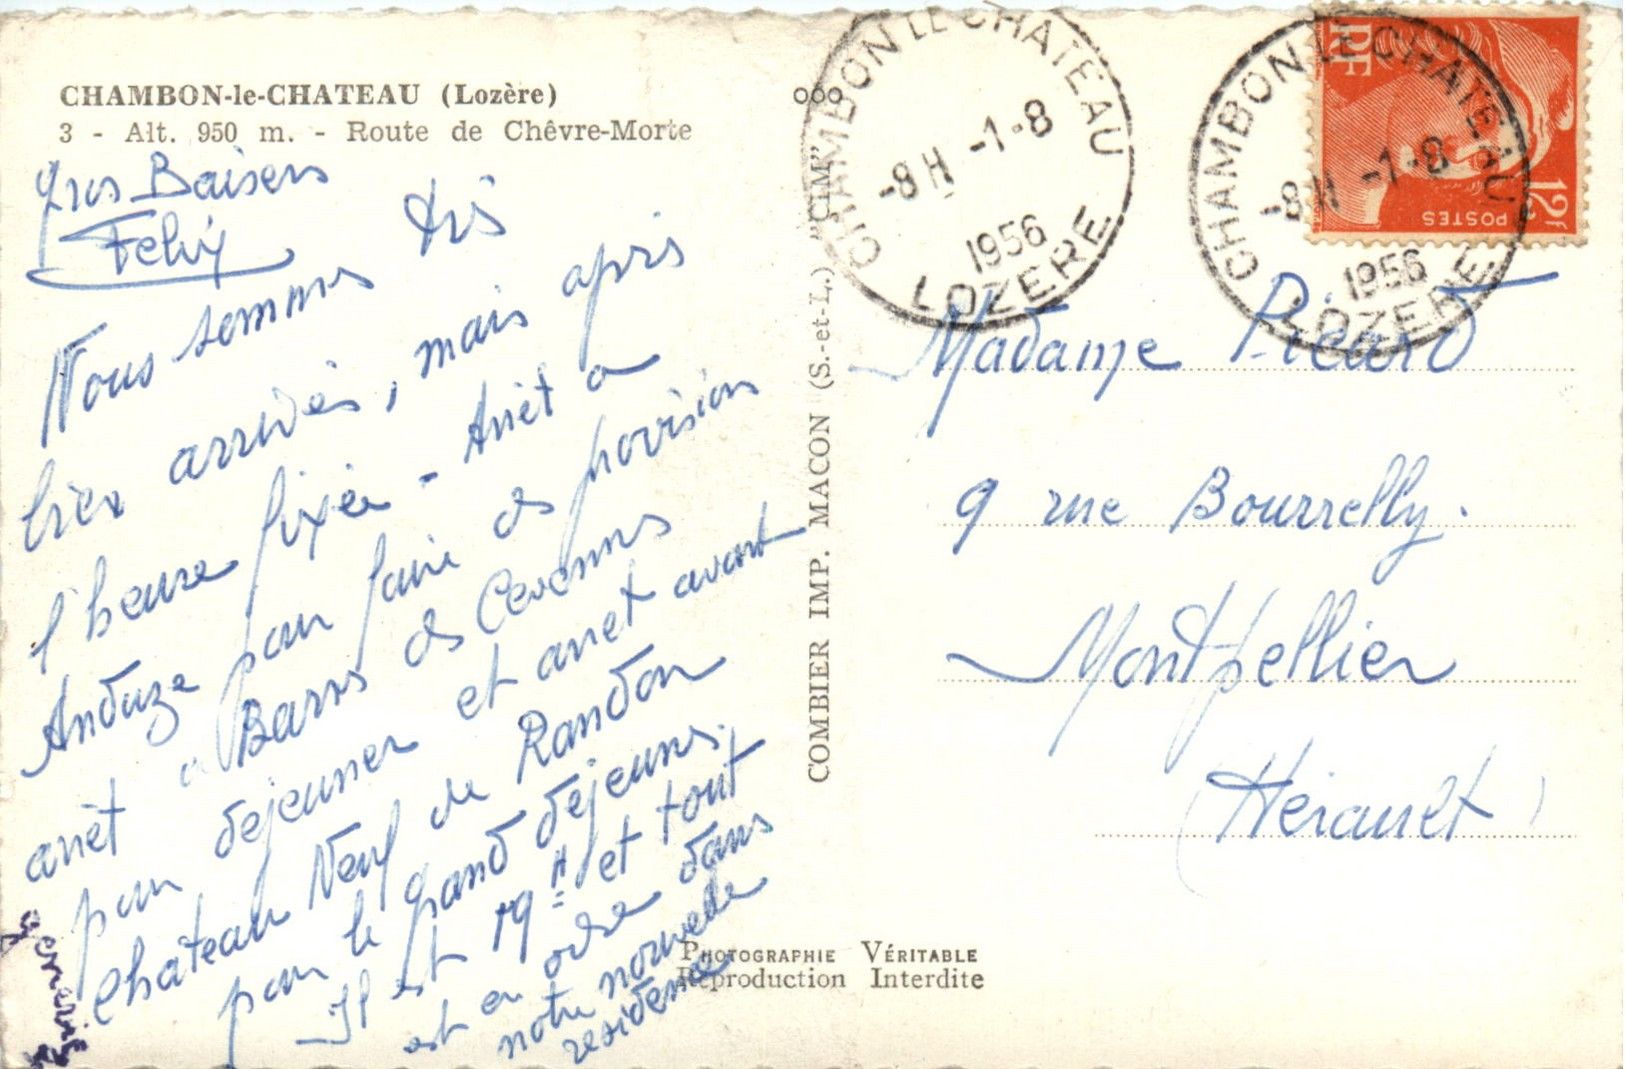 CHAMBON-le-CHATEAU (Lozère)
3 - Alt. 950 m. - Route de Chêvre-Morte
gros Baisers
Nous sommes très
bien arrivés, mais après
l'heure fixée - Arrêt a
Anduze pour faire des provisions
arrêt a Barrs des Cevennes
pour dejeuner et arret avant
chateau Neuf de Randon
pour le grand dejeuner.
Il est 19H et tout
est en ordre dans
notre nouvelle
residence
COMBIER IMP. MACON (S.-et-L.) "CIM"
CHAMBON LE CHATEAU
-8H -1-8
1956
LOZERE
CHAMBON LE CHATEAU
-8H -1-8
1956
LOZERE
RF
12F
POSTES
Madame Picard
9 rue Bourrelly.
Montpellier
(Hérault)
PHOTOGRAPHIE VÉRITABLE
Reproduction Interdite